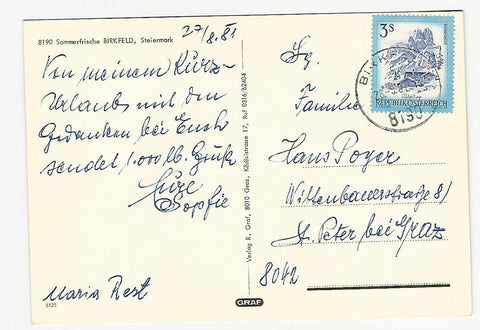 8190 Sommerfrische BIRKFELD, Steiermark
27/8.81
Von meinem Kurz-
Urlaub mit den
Gedanken bei Euch
sendet 1.000 lb. Grüße
Eure
Sopfie
Maria Rest
5125
Verlag R. Graf, 8010 Graz, 17, Ruf 0316/82404
GRAF
3S
REPUBLIK ÖSTERREICH
8190
Sg.
Familie
Hans Poyer
Wittenbauerstraße 81
St. Peter bei Graz
8042